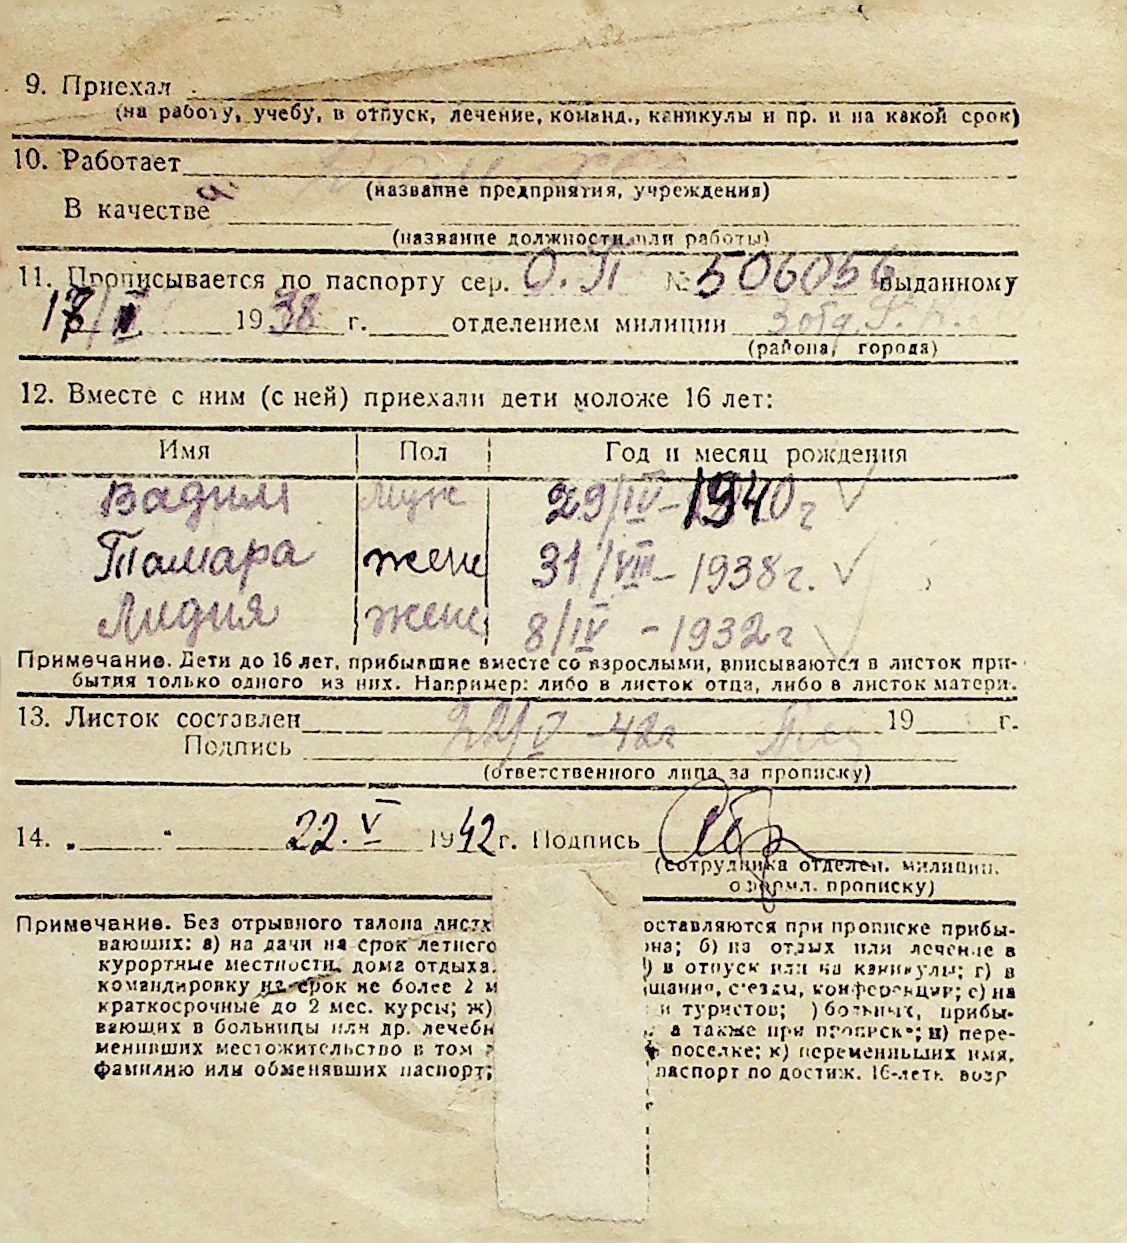 9. Приехал
(на работу, учебу, в отпуск, лечение, команд., каникулы и пр. и на какой срок)
10. Работает
(название предприятия, учреждения)
В качестве
(название должности или работы)
11. Прописывается по паспорту сер. О. П № 506056 выданному
19 38 г. отделением милиции
(района, города)
12. Вместе с ним (с ней) приехали дети моложе 16 лет:
Имя Пол Год и месяц рождения
Вадим муж 29/IV - 1940 г
Тамара женс 31/VIII - 1938 г.
Лидия женс 8/IV - 1932 г
Примечание. Дети до 16 лет, прибывшие вместе со взрослыми, вписываются в листок при-
бытия только одного из них. Например: либо в листок отца, либо в листок матери.
13. Листок составлен 22/V 42 г 19 г.
Подпись
(ответственного лица за прописку)
14. „ " 22. V 1942 г. Подпись
(сотрудника отделен. милиции,
оформл. прописку)
Примечание. Без отрывного талона листк оставляются при прописке прибы-
вающих: а) на дачи на срок летнего на; б) на отдых или лечение в
курортные местности, дома отдыха. ) в отпуск или на каникулы; г) в
командировку на срок не более 2 м щания, с'езды, конференции; е) на
краткосрочные до 2 мес. курсы; ж) и туристов; ) больных, прибы-
вающих в больницы или др. лечебн а также при прописке; и) пере-
менивших местожительство в том поселке; к) переменивших имя,
фамилию или обменявших паспорт; паспорт по достиж. 16-летн. возр